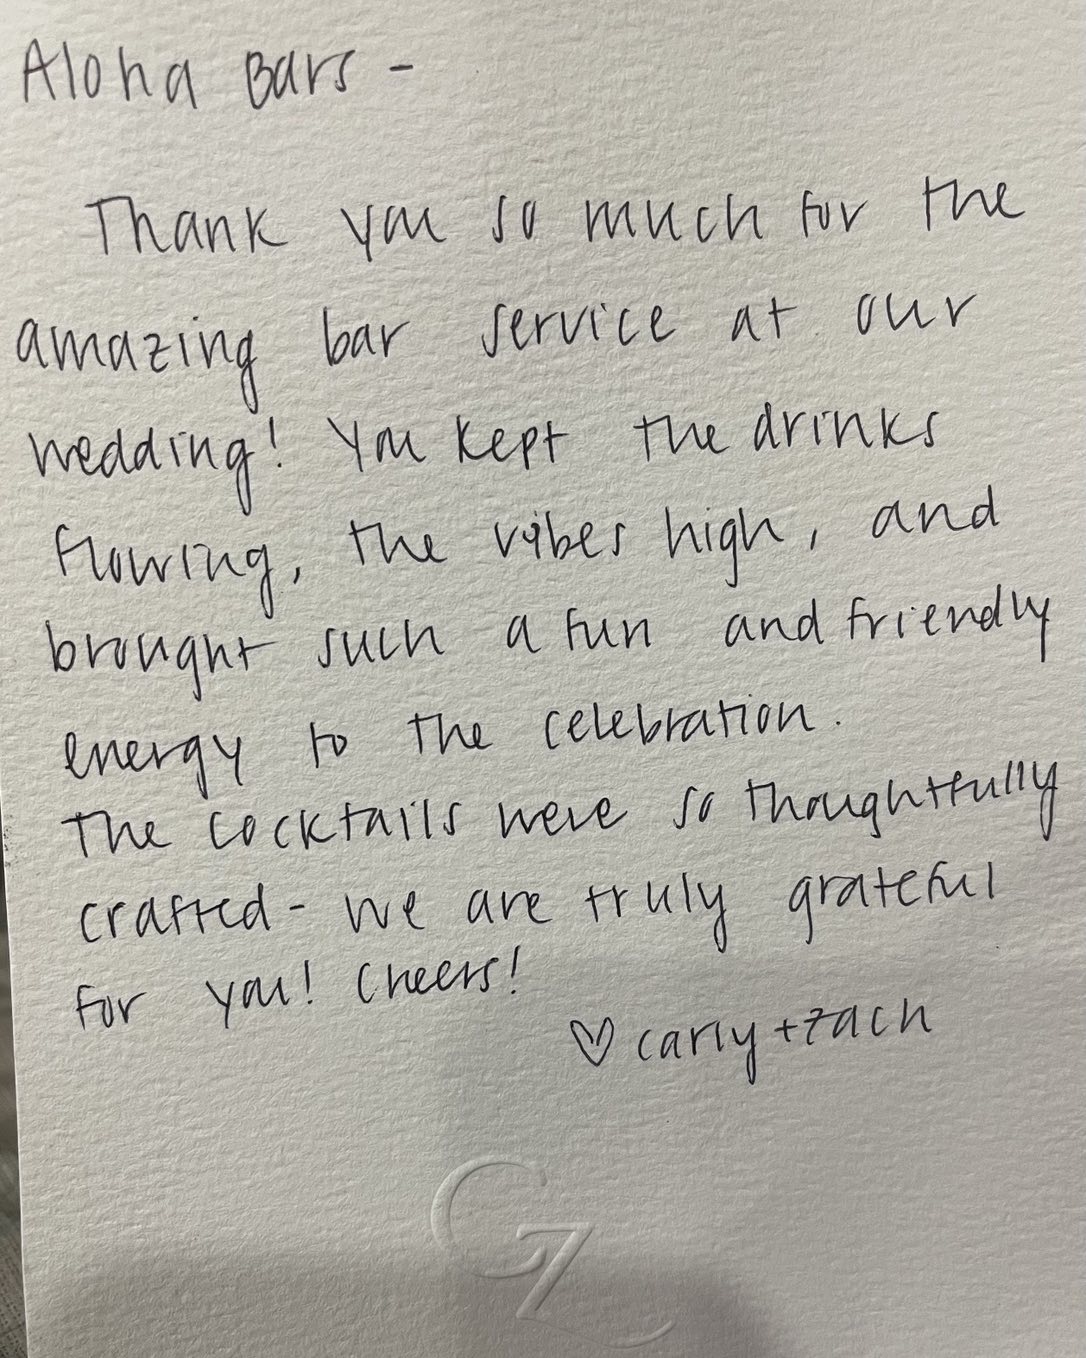 Aloha Bars -
Thank you so much for the
amazing bar service at our
wedding! You kept the drinks
flowing, the vibes high, and
brought such a fun and friendly
energy to the celebration.
The cocktails were so thoughtfully
crafted - we are truly grateful
for you! Cheers!
♡ carly + zach
CZ